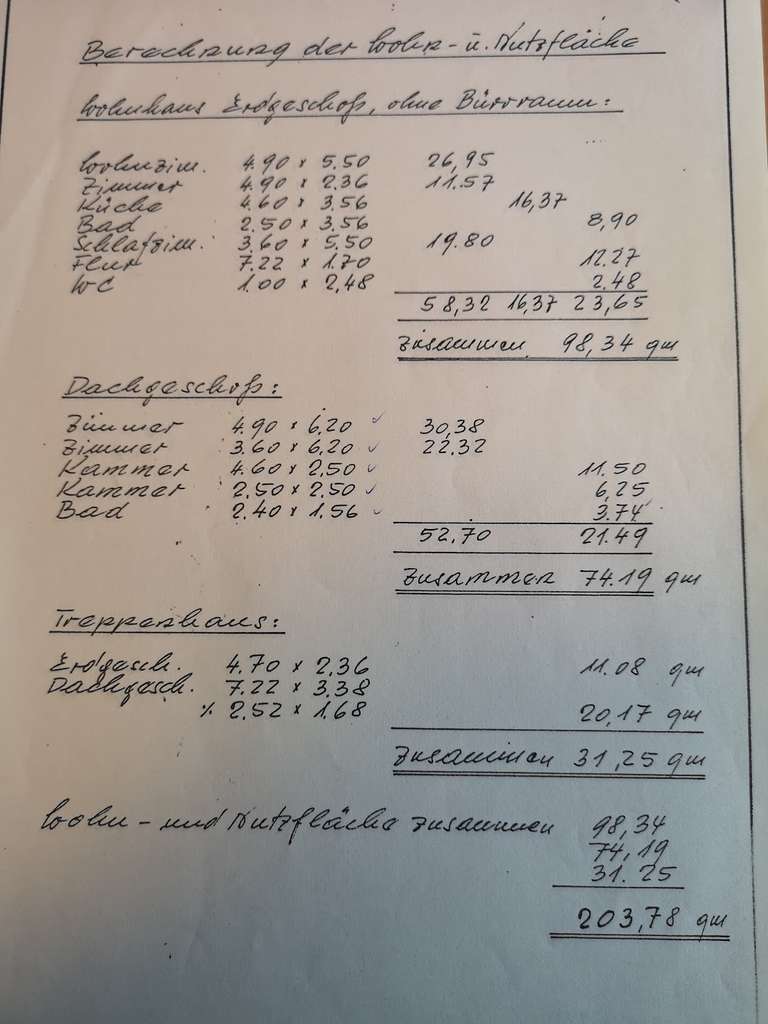 Berechnung der Wohn- u. Nutzfläche
Wohnhaus Erdgeschoß, ohne Büroraum:
Wohnzim. 4.90 x 5.50 26,95
Zimmer 4.90 x 2.36 11.57
Küche 4.60 x 3.56 16,37
Bad 2.50 x 3.56 8,90
Schlafzim. 3.60 x 5.50 19.80
Flur 7.22 x 1.70 12.27
WC 1.00 x 2,48 2.48
58,32 16,37 23,65
Zusammen 98,34 qm
Dachgeschoß:
Zimmer 4.90 x 6.20 ✓ 30,38
Zimmer 3.60 x 6.20 ✓ 22.32
Kammer 4.60 x 2.50 ✓ 11.50
Kammer 2.50 x 2.50 ✓ 6,25
Bad 2.40 x 1.56 ✓ 3.74
52.70 21.49
Zusammen 74.19 qm
Treppenhaus:
Erdgesch. 4.70 x 2.36 11.08 qm
Dachgesch. 7.22 x 3.38
% 2.52 x 1.68 20,17 qm
Zusammen 31,25 qm
Wohn- und Nutzfläche zusammen 98,34
74,19
31.25
203,78 qm